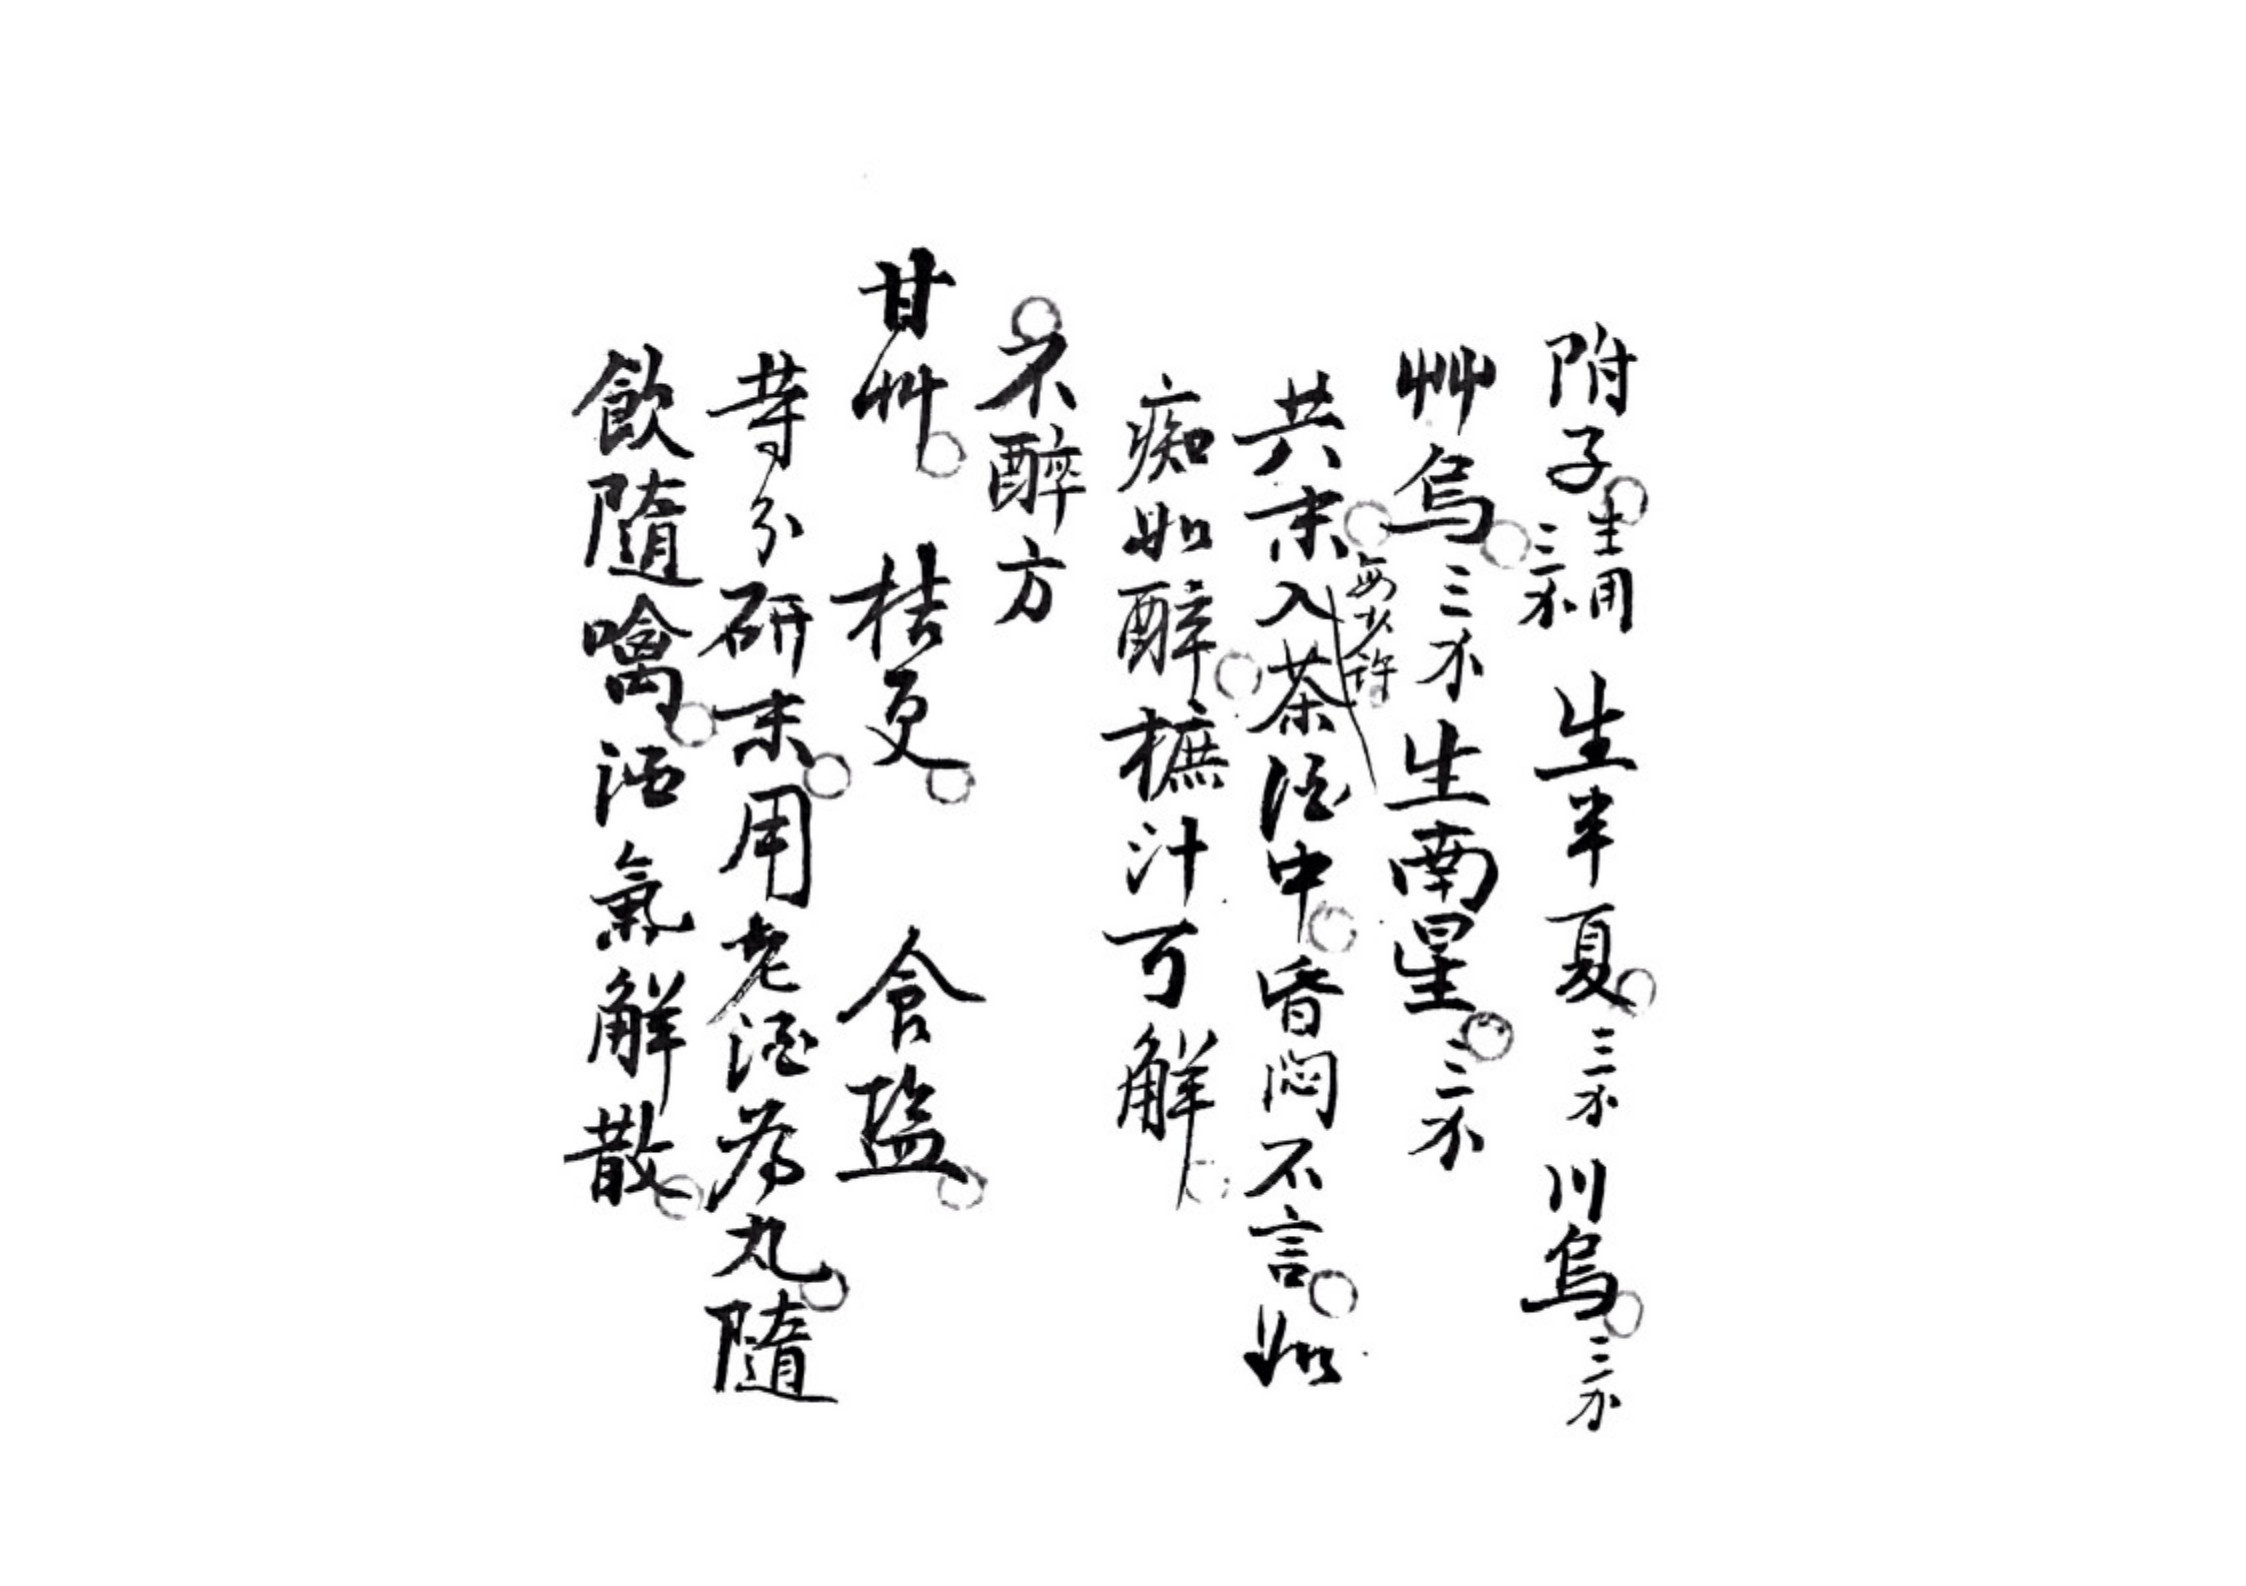 附子生用三分 生半夏三分 川烏三分
艸烏三分生南星三分
共末每少許入茶酒中昏悶不言如
痴如醉樜汁可解
不醉方
甘艸 桔更 食塩
等分研末用老酒為丸隨
飲隨噙酒氣解散